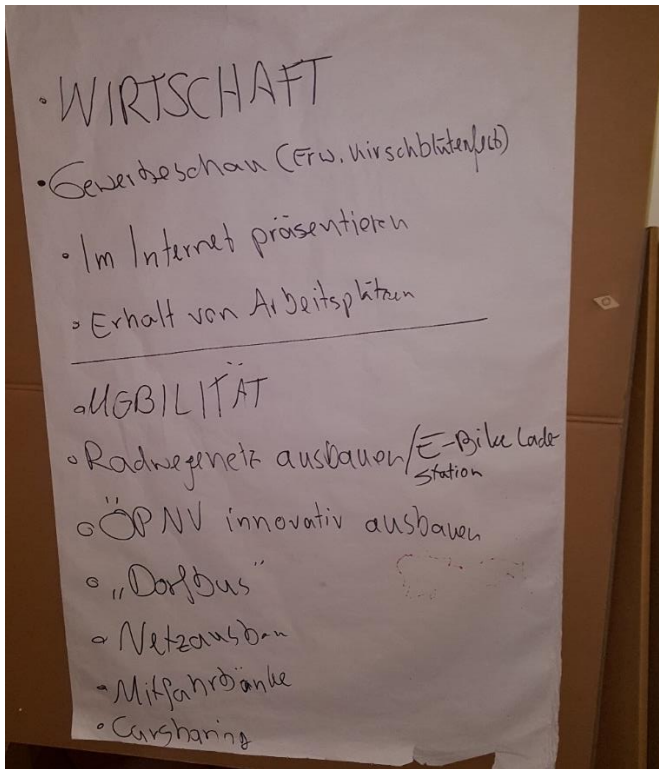 • WIRTSCHAFT
• Gewerbeschau (Erw. Kirschblütenfest)
• Im Internet präsentieren
• Erhalt von Arbeitsplätzen
• MOBILITÄT
• Radwegenetz ausbauen/E-Bike Lade
Station
• ÖPNV innovativ ausbauen
• „Dorfbus"
• Netzausbau
• Mitfahrbänke
• Carsharing